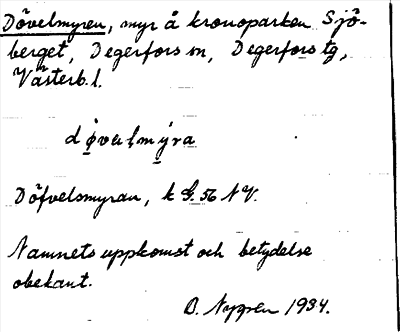 Dövelmyren, myr å kronoparken Sjö-
berget, Degerfors sn, Degerfors tg,
Västerb. l.
döve̥lmýra
Döfvelsmyran, k G. 56 NV.
Namnets uppkomst och betydelse
obekant.
B. Nygren 1934.